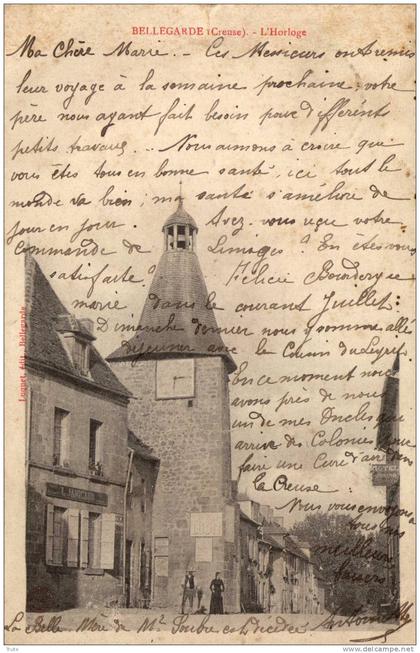 BELLEGARDE (Creuse). - L'Horloge
Ma Chère Marie. - Ces Messieurs ont remis
leur voyage à la semaine prochaine votre
père nous ayant fait besoin pour différents
petits travaux... Nous aimons à croire que
vous êtes tous en bonne santé, ici tout le
monde va bien; ma santé s'améliore de
jour en jour. Avez-vous reçu votre
Commande de Limoges? En êtes-vous
satisfaite? Félicie se
marie dans le courant Juillet.
Dimanche dernier nous y sommes allés
déjeuner avec le Cousin du Leyrit
En ce moment nous
avons près de nous
un de mes Oncles qui
arrive des Colonies pour
faire une Cure d'air dans
la Creuse.
Nous vous envoyons
tous nos
meilleurs
baisers
Antoinette
La Belle Mère de Mr est décédée
Luquet, édit., Bellegarde
HOTEL